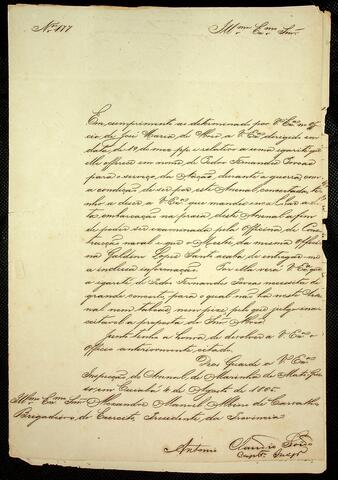 Nº 177
Illmo Exmo Snr
Em cumprimento ao determinado por V Exa no offi
cio de José Maria de a V Exa, dirigido em
data de 10 do mez pp e relativo a uma igarité que
elle offerece em nome de Pedro Fernandes Povoas
para o serviço da Nação, durante a guerra com
a condição de ser por este Arsenal, concertada, te
nho a dizer a V Exa que mandei encalhar a di
ta embarcação na praia deste Arsenal afim
de poder ser examinada pela Officina de Cons
trucção naval e que o Mestre da mesma offici
na Galdino Lopes acaba de entregar-me
a inclusa informação. Por ella verá V Exa que
a igarité de Pedro Fernandes Povoas necessita de
grande concerto, para o qual não ha neste Arse
nal nem taboado nem pelo que julgo inac
ceitavel a proposta do Snr
Junto tenho a honra de devolver a V Exa o
officio anteriormente citado.
Deos Guarde a V Exa
Inspecção do Arsenal de Marinha de Mato Gros
so, em Cuiabá 4 de Agosto de 1865
Illmo Exmo Snr Alexandre Manoel Albino de Carvalho
Brigadeiro do Exercito, Presidente da Provincia
Antonio Claudio